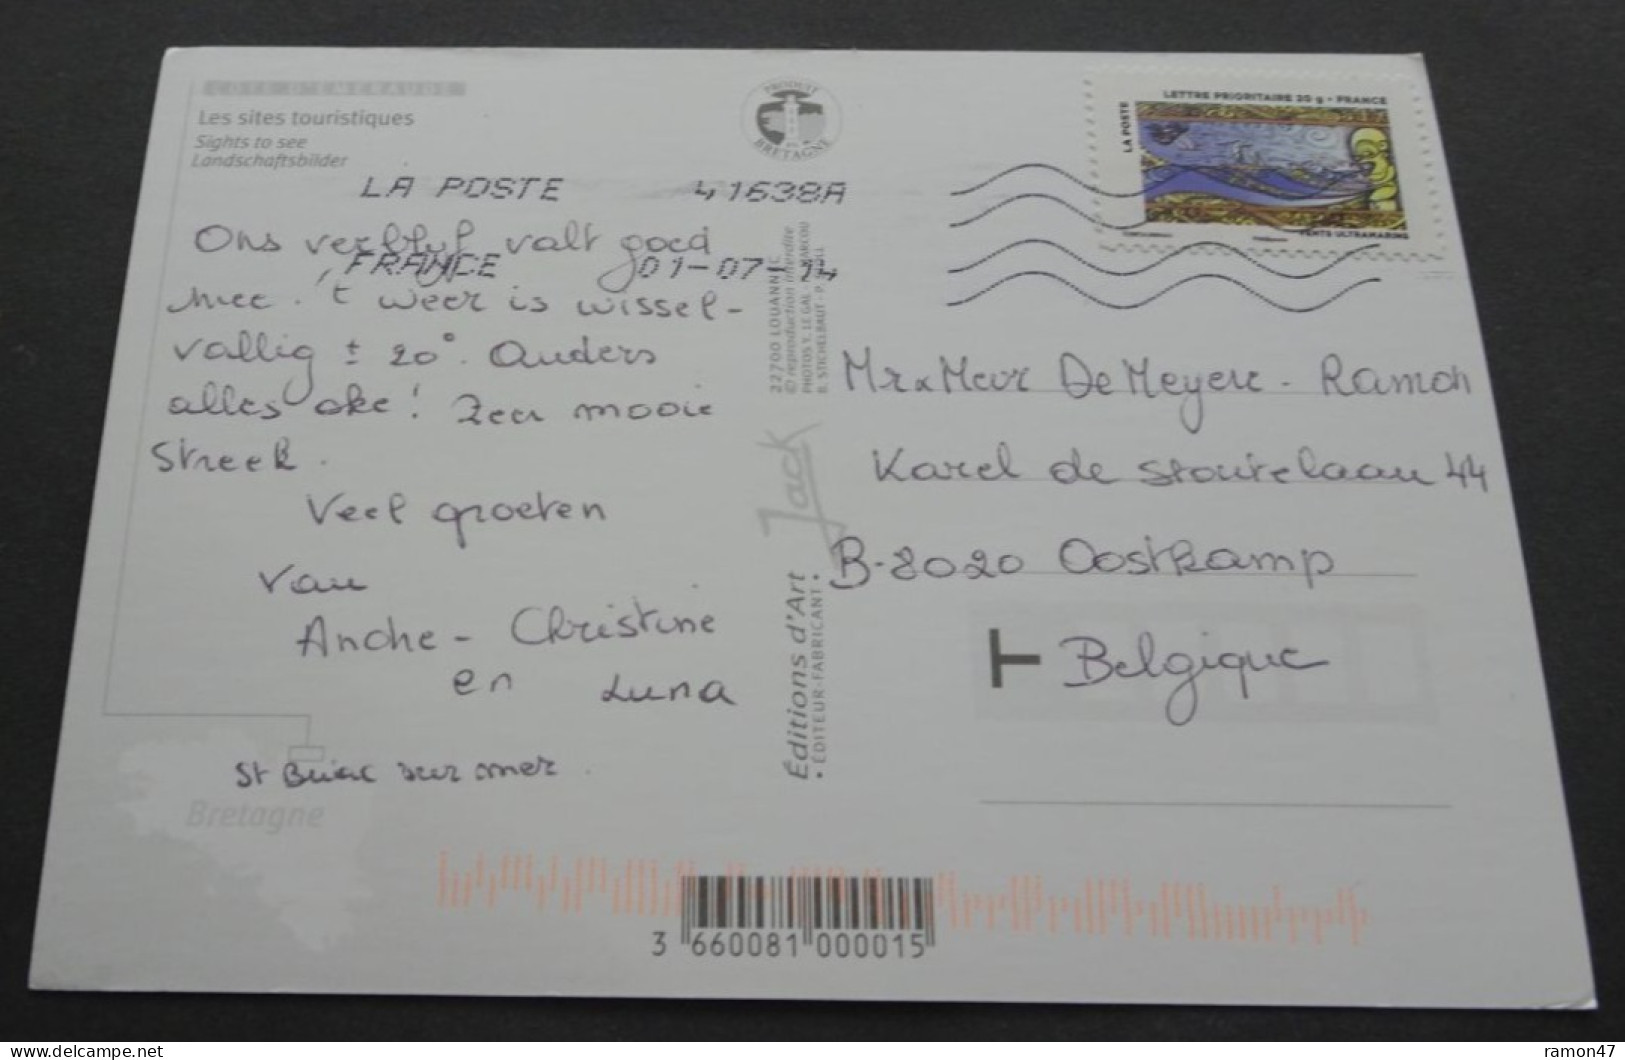 CÔTE D'ÉMERAUDE
Les sites touristiques
Sights to see
Landschaftsbilder
PRODUIT
EN
BRETAGNE
LETTRE PRIORITAIRE 20 g - FRANCE
LA POSTE
VENTS ULTRAMARINS
LA POSTE 41638A
FRANCE 01-07-14
Ons verblyf valt goed
mee. 't weer is wissel-
vallig ± 20°. Anders
alles oke! Zeer mooie
streek.
Veel groeten
van
Andre - Christine
en Luna
St Briac sur mer.
Bretagne
22700 LOUANNEC
© reproduction interdite
PHOTOS Y. LE GAL - MARCOU
B. STICHELBAUT - P.
Jack
Éditions d'Art
• ÉDITEUR-FABRICANT •
Mr x Mevr De Meyere - Ramon
Karel de Stoutelaan 44
B-8020 Oostkamp
T Belgique
3 660081 000015
ramon47